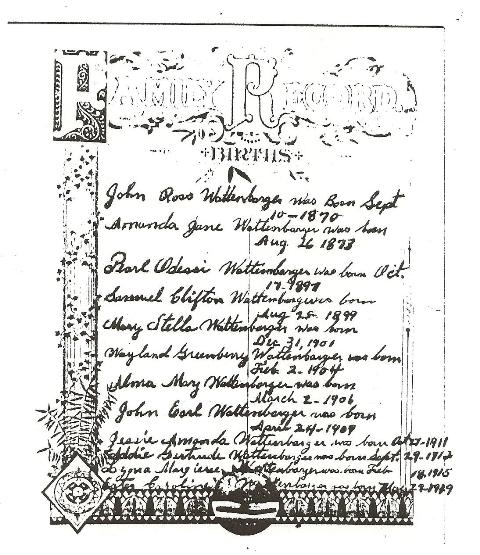 FAMILY RECORD.
BIRTHS
John Ross Wattenbarger was Born Sept
10-1870
Amanda Jane Wattenbarger was born
Aug. 26 1873
Pearl Odessi Wattenbarger was born Oct.
17-1897
Samuel Clifton Wattenbarger was born
Aug 25- 1899
Mary Stella Wattenbarger was born
Dec 31, 1901
Wayland Greenberry Wattenbarger was born
Feb 2-1904
Alma May Wattenbarger was born
March 2-1906
John Earl Wattenbarger was born
April 24-1909
Jessie Amanda Wattenbarger was born Oct 27-1911
Gertrude Wattenbarger was born Sept. 29-1912
Wattenbarger was born Feb
18,1915
Caroline Wattenbarger was born 1919